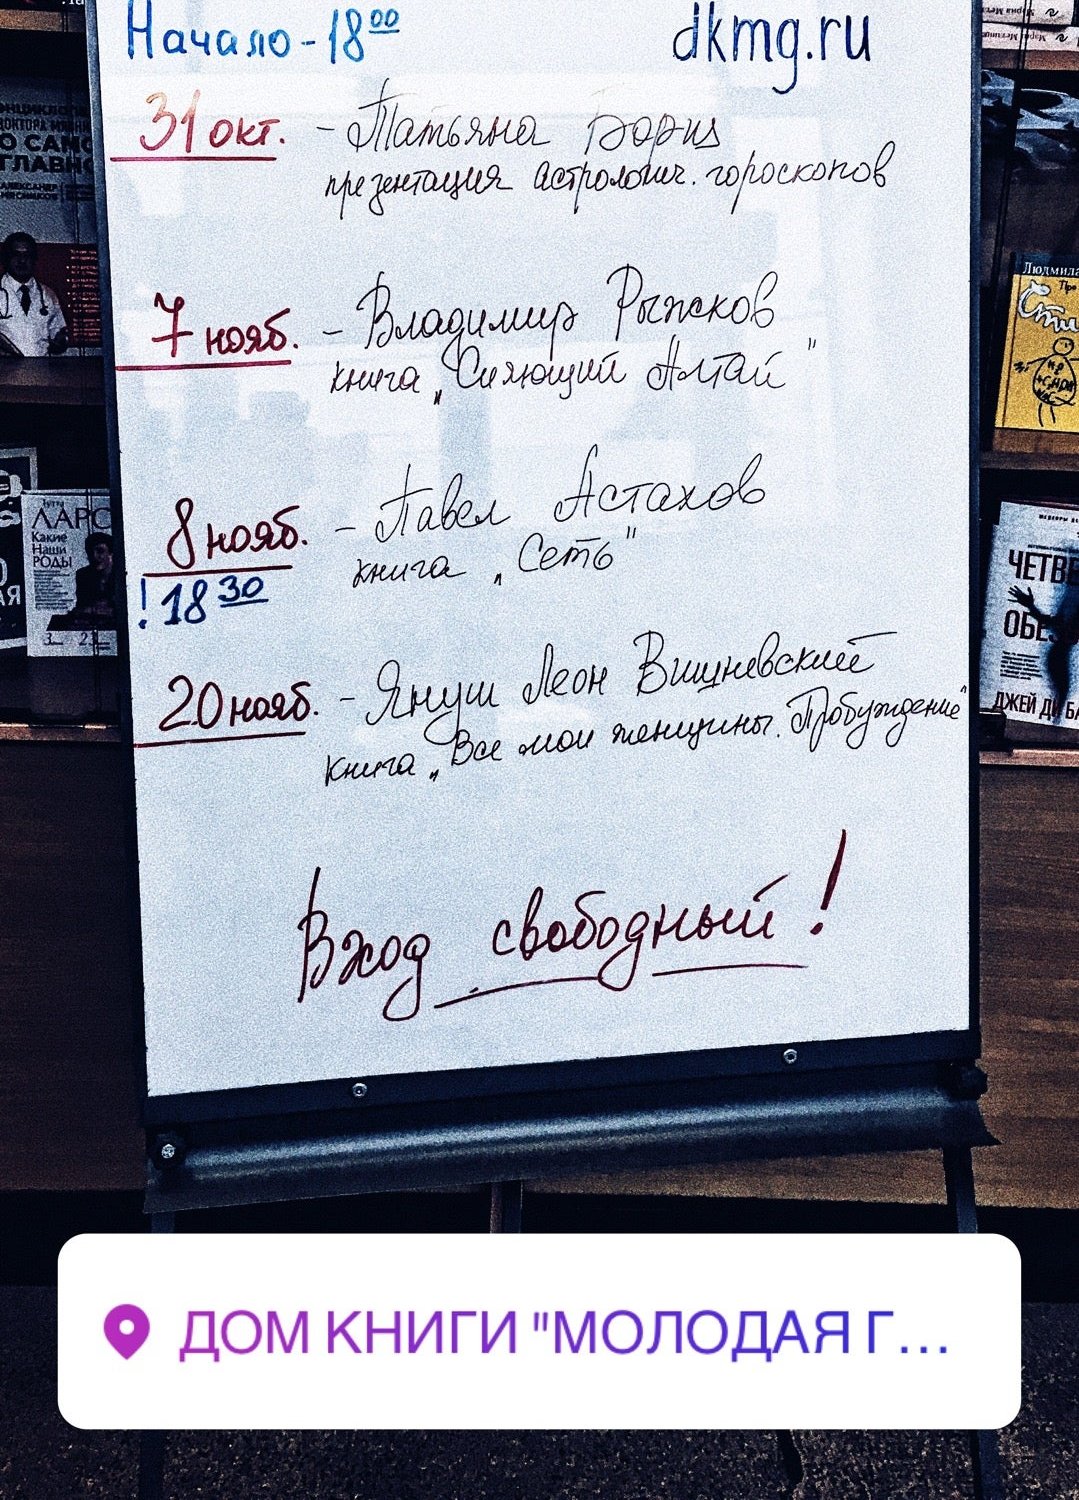 Начало - 18 00
dkmg.ru
31 окт. - Татьяна Борщ
презентация астрологич. гороскопов
7 нояб. - Владимир Рыжков
книга „Сияющий Алтай"
8 нояб. - Павел Астахов
книга „Сеть"
! 18 30
20 нояб. - Януш Леон Вишневский
книга „Все мои женщины. Пробуждение"
Вход свободный!
О САМО
ГЛАВН
Какие
Наши
РОДЫ
Людмила
ЧЕТВЕ
ОБЕЗ
ДЖЕЙ Д
ДОМ КНИГИ "МОЛОДАЯ Г...